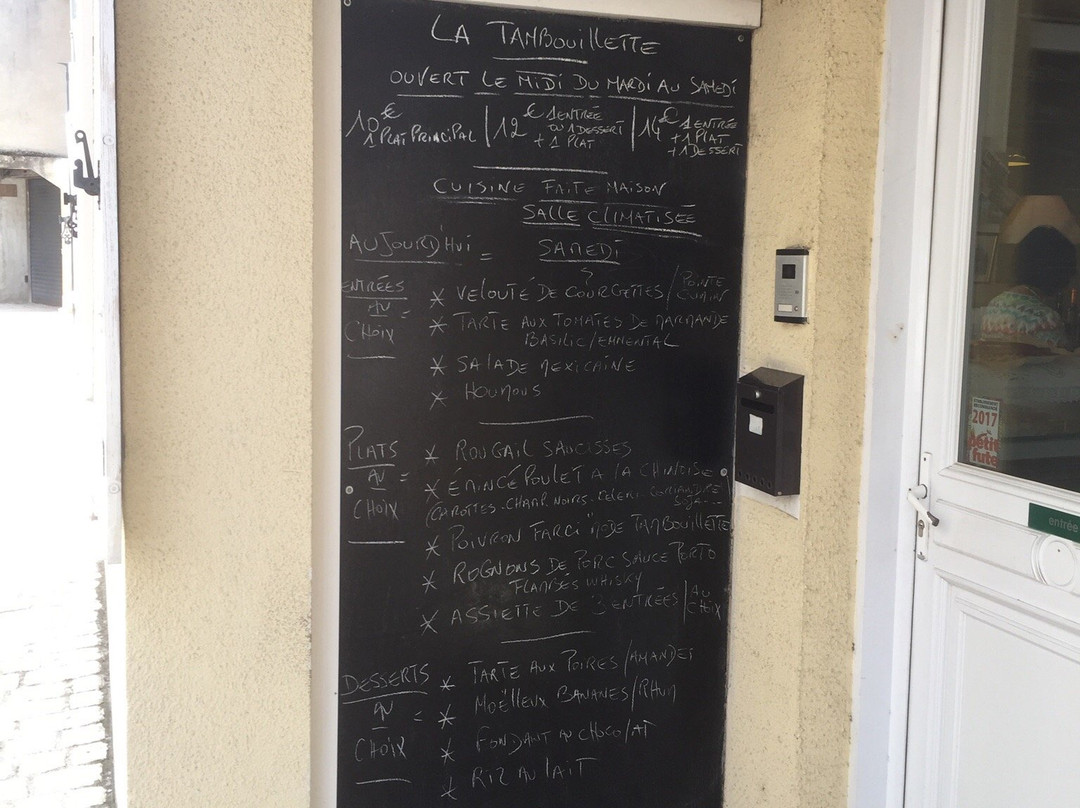 LA TAMBOUILLETTE
OUVERT LE MIDI DU MARDI AU SAMEDI
10€ 1 PLAT PRINCIPAL
12€ 1 ENTRÉE
OU 1 DESSERT
+ 1 PLAT
14€ 1 ENTRÉE
+ 1 PLAT
+ 1 DESSERT
CUISINE FAITE MAISON
SALLE CLIMATISÉE
AUJOURD'HUI = SAMEDI
ENTRÉES AU CHOIX =
* VELOUTÉ DE COURGETTES / POINTE CUMIN
* TARTE AUX TOMATES DE MARMANDE
BASILIC / EMMENTAL
* SALADE MEXICAINE
* HOUMOUS
PLATS AU CHOIX =
* ROUGAIL SAUCISSES
* ÉMINCÉ POULET A LA CHINOISE
(CAROTTES. CHAMP. NOIRS. CELERI. CORIANDRE
SOJA---
* POIVRON FARCI MODE TAMBOUILLETTE
* ROGNONS DE PORC SAUCE PORTO
FLAMBÉS WHISKY
* ASSIETTE DE 3 ENTRÉES / AU CHOIX
DESSERTS AU CHOIX =
* TARTE AUX POIRES / AMANDES
* MOËLLEUX BANANES / RHUM
* FONDANT AU CHOCOLAT
* RIZ AU LAIT
2017
petit
futé
entrée